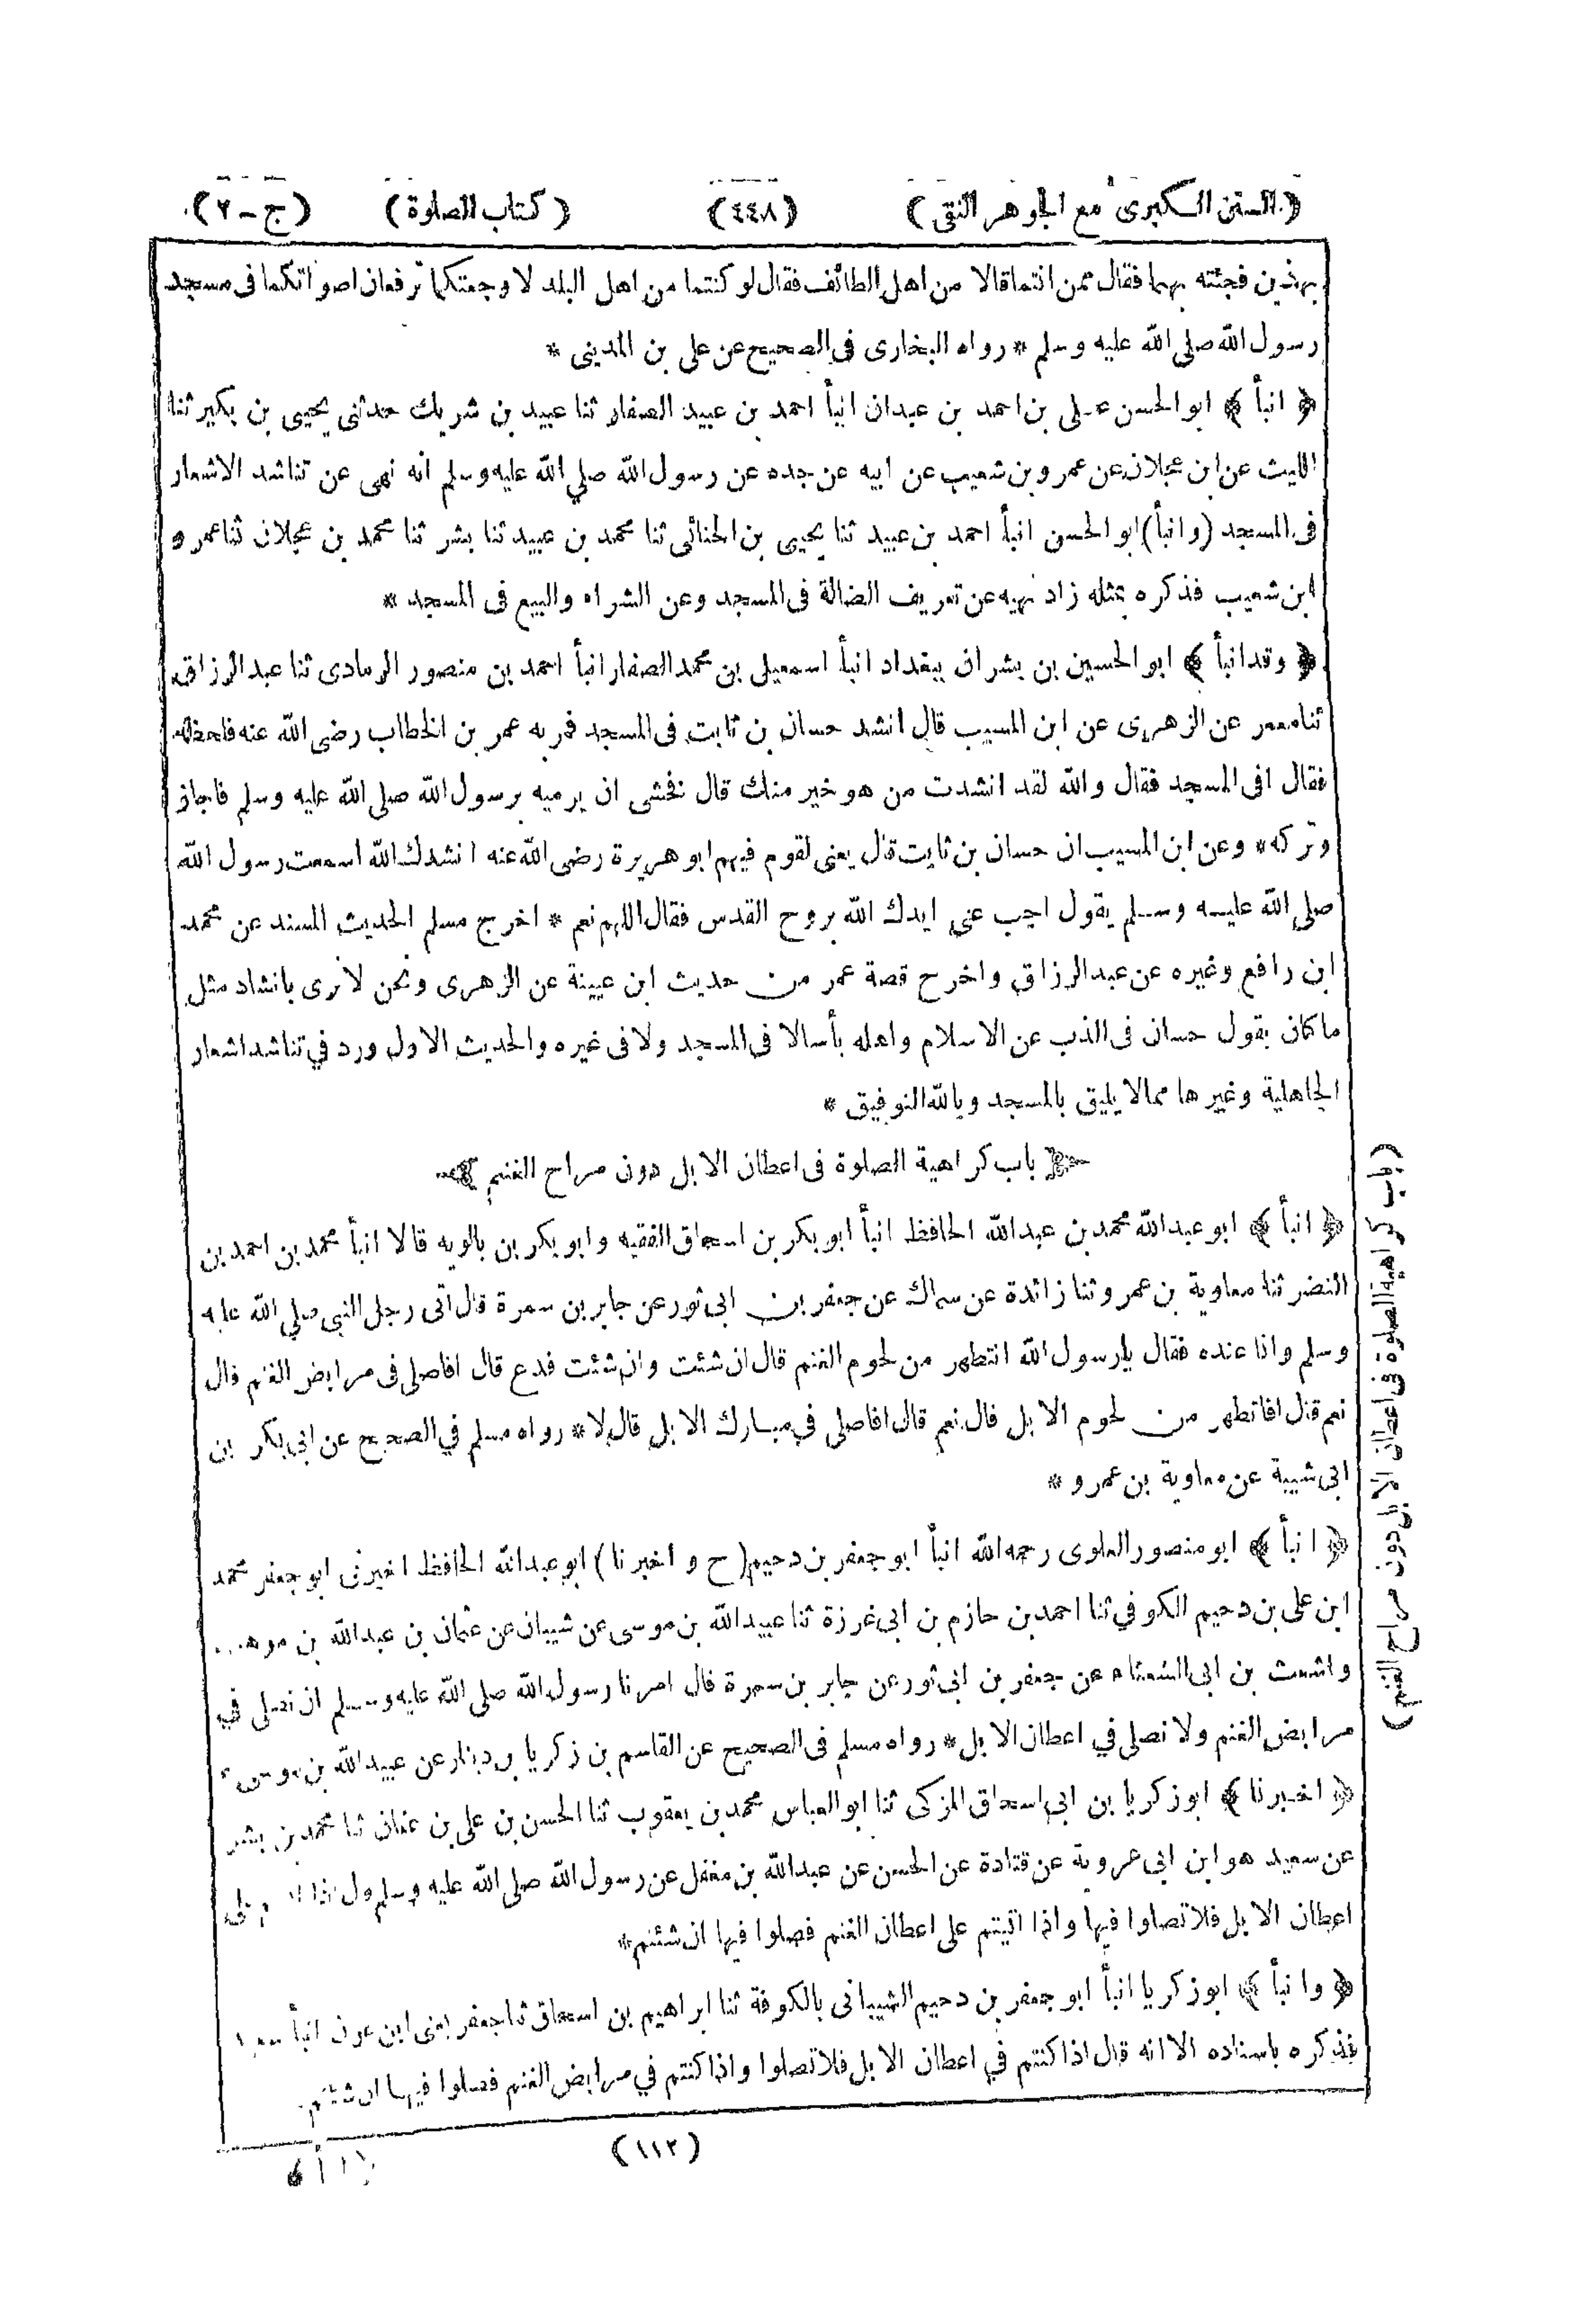 (السنن الكبرى مع الجوهر النقى) (٤٤٨) (كتاب الصلوة) (ج-٢)
بهذين فجئته بهما فقال ممن انتما قالا من اهل الطائف فقال لو كنتما من اهل البلد لا وجعتكما ترفعان اصواتكما فى مسجد
رسول الله صلى الله عليه وسلم * رواه البخارى فى الصحيح عن على بن المدينى *
﴿ انبأ ﴾ ابو الحسن على بن احمد بن عبدان انبأ احمد بن عبيد الصفار ثنا عبيد بن شريك حدثنى يحيى بن بكير ثنا
الليث عن ابن عجلان عن عمرو بن شعيب عن ابيه عن جده عن رسول الله صلى الله عليه وسلم انه نهى عن تناشد الاشعار
فى المسجد (وانبأ) ابو الحسن انبأ احمد بن عبيد ثنا يحيى بن الحنائى ثنا محمد بن عبيد ثنا بشر ثنا محمد بن عجلان ثنا عمرو
ابن شعيب فذكره بمثله زاد نهيه عن تعريف الضالة فى المسجد وعن الشراء والبيع فى المسجد *
﴿ وقد انبأ ﴾ ابو الحسين بن بشران ببغداد انبأ اسمعيل بن محمد الصفار انبأ احمد بن منصور الرمادى ثنا عبد الرزاق
ثنا معمر عن الزهرى عن ابن المسيب قال انشد حسان بن ثابت فى المسجد فمر به عمر بن الخطاب رضى الله عنه فلحظه
فقال افى المسجد فقال والله لقد انشدت من هو خير منك قال نخشى ان يرميه برسول الله صلى الله عليه وسلم فاجاز
وتركه * وعن ابن المسيب ان حسان بن ثابت قال يعنى لقوم فيهم ابو هريرة رضى الله عنه انشدك الله اسمعت رسول الله
صلى الله عليه وسلم يقول اجب عنى ايدك الله بروح القدس فقال اللهم نعم * اخرج مسلم الحديث المسند عن محمد
ابن رافع وغيره عن عبد الرزاق واخرج قصة عمر من حديث ابن عيينة عن الزهرى ونحن لا نرى بانشاد مثل
ما كان يقول حسان فى الذب عن الاسلام واهله بأسا لا فى المسجد ولا فى غيره والحديث الاول ورد في تناشد اشعار
الجاهلية وغيرها مما لا يليق بالمسجد وبالله التوفيق *
باب كراهية الصلوة فى اعطان الابل دون مراح الغنم
﴿ انبأ ﴾ ابو عبد الله محمد بن عبد الله الحافظ انبأ ابو بكر بن اسحاق الفقيه وابو بكر بن بالويه قالا انبأ محمد بن احمد بن
النضر ثنا معاوية بن عمرو ثنا زائدة عن سماك عن جعفر بن ابى ثور عن جابر بن سمرة قال اتى رجل النبى صلى الله عليه
وسلم وانا عنده فقال يا رسول الله انتطهر من لحوم الغنم قال ان شئت وان شئت فدع قال افاصلى فى مرابض الغنم قال
نعم قال افاتطهر من لحوم الابل قال نعم قال افاصلى في مبارك الابل قال لا * رواه مسلم في الصحيح عن ابى بكر بن
ابى شيبة عن معاوية بن عمرو *
﴿ انبأ ﴾ ابو منصور العلوى رحمه الله انبأ ابو جعفر بن دحيم (ح واخبرنا) ابو عبد الله الحافظ اخبرنى ابو جعفر محمد
ابن على بن دحيم الكوفي ثنا احمد بن حازم بن ابى غرزة ثنا عبيد الله بن موسى عن شيبان عن عثمان بن عبد الله بن
واشعث بن ابى الشعثاء عن جعفر بن ابى ثور عن جابر بن سمرة قال امرنا رسول الله صلى الله عليه وسلم ان نصلى في
مرابض الغنم ولا نصلى في اعطان الابل * رواه مسلم فى الصحيح عن القاسم بن زكريا بن دينار عن عبيد الله بن موسى
﴿ اخبرنا ﴾ ابو زكريا بن ابى اسحاق المزكى ثنا ابو العباس محمد بن يعقوب ثنا الحسن بن على بن عفان ثنا محمد بن بشر
عن سعيد هو ابن ابى عروبة عن قتادة عن الحسن عن عبد الله بن مغفل عن رسول الله صلى الله عليه وسلم
اعطان الابل فلا تصلوا فيها واذا اتيتم على اعطان الغنم فصلوا فيها ان شئتم *
﴿ وانبأ ﴾ ابو زكريا انبأ ابو جعفر بن دحيم الشيبانى بالكوفة ثنا ابراهيم بن اسحاق ثنا جعفر يعنى ابن عون انبأ
فذكره باسناده الا انه قال اذا كنتم في اعطان الابل فلا تصلوا واذا كنتم في مرابض الغنم فصلوا فيها ان شئتم
(١١٢)
(باب كراهية الصلوة فى اعطان الابل دون مراح الغنم)